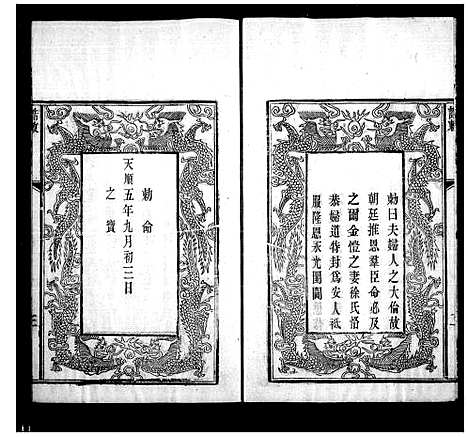 勑曰夫婦人之大倫故
朝廷推恩羣臣命必及
之爾金愷之妻徐氏恪
恭婦道特封爲安人祗
服隆恩永光閨閫
勅命
天順五年九月初三日
之寶
誥敕
誥敕